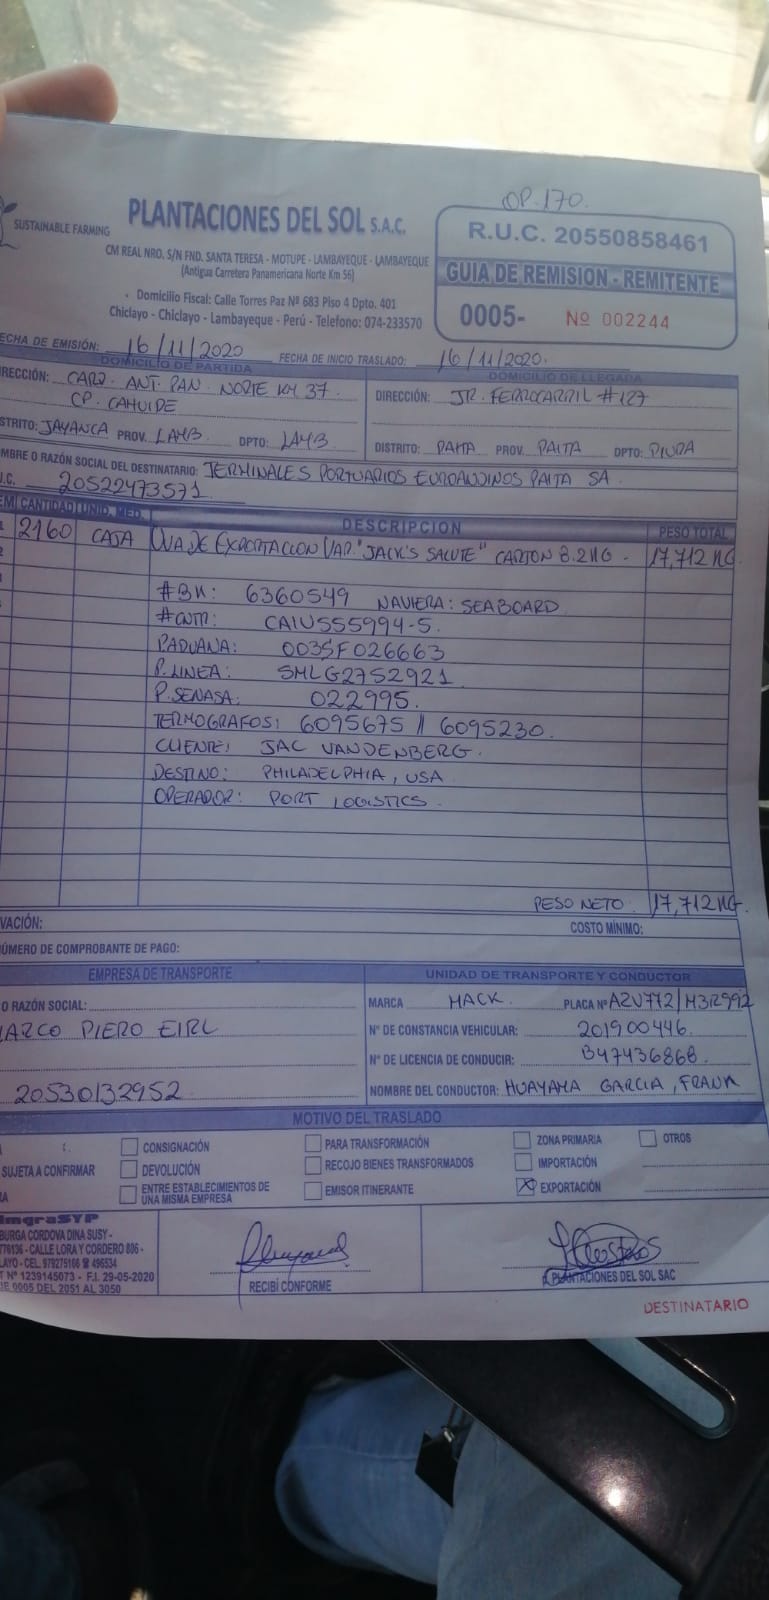 OP.170.
SUSTAINABLE FARMING
PLANTACIONES DEL SOL S.A.C.
CM REAL NRO. S/N FND. SANTA TERESA - MOTUPE - LAMBAYEQUE - LAMBAYEQUE
(Antigua Carretera Panamericana Norte Km 56)
Domicilio Fiscal: Calle Torres Paz Nº 683 Piso 4 Dpto. 401
Chiclayo - Chiclayo - Lambayeque - Perú - Telefono: 074-233570
R.U.C. 20550858461
GUIA DE REMISION - REMITENTE
0005- Nº 002244
ECHA DE EMISIÓN: 16/11/2020 FECHA DE INICIO TRASLADO: 16/11/2020.
DOMICILIO DE PARTIDA
IRECCIÓN: CARR. ANT. PAN. NORTE KM 37.
CP. CAHUIDE
STRITO: JAYANCA PROV. LAMB. DPTO: LAMB
DOMICILIO DE LLEGADA
DIRECCIÓN: JR. FERROCARRIL #127
DISTRITO: PAITA PROV. PAITA DPTO: PIURA
OMBRE O RAZÓN SOCIAL DEL DESTINATARIO: TERMINALES PORTUARIOS EUROANDINOS PAITA SA.
.C. 20522473571
EM CANTIDAD UNID. MED. DESCRIPCION PESO TOTAL
2160 CAJA UVA DE EXPORTACCION VAR. "JACK'S SALUTE" CARTON 8.2KG. 17,712 KG
#BK: 6360549 NAVIERA: SEABOARD
#CNTR: CAIU555994-5.
P.ADUANA: 0035F026663
P.LINEA: SMLG2752921
P.SENASA: 022995.
TERMOGRAFOS: 6095675 // 6095230.
CLIENTE: JAC VANDENBERG.
DESTINO: PHILADELPHIA, USA
OPERADOR: PORT LOGISTICS.
PESO NETO: 17,712 KG.
VACIÓN: COSTO MÍNIMO:
NÚMERO DE COMPROBANTE DE PAGO:
EMPRESA DE TRANSPORTE
O RAZÓN SOCIAL:
MARCO PIERO EIRL
20530132952
UNIDAD DE TRANSPORTE Y CONDUCTOR
MARCA MACK. PLACA Nº AZV772/M3R992
Nº DE CONSTANCIA VEHICULAR: 201900446.
Nº DE LICENCIA DE CONDUCIR: B47436868.
NOMBRE DEL CONDUCTOR: HUAYAMA GARCIA, FRANK
MOTIVO DEL TRASLADO
CONSIGNACIÓN PARA TRANSFORMACIÓN ZONA PRIMARIA OTROS
SUJETA A CONFIRMAR DEVOLUCIÓN RECOJO BIENES TRANSFORMADOS IMPORTACIÓN
ENTRE ESTABLECIMIENTOS DE UNA MISMA EMPRESA EMISOR ITINERANTE X EXPORTACIÓN
ImgraSYP
BURGA CORDOVA DINA SUSY -
776136 - CALLE LORA Y CORDERO 806 -
LAYO - CEL. 979275166 ☎ 496534
T Nº 1239145073 - F.I. 29-05-2020
IE 0005 DEL 2051 AL 3050
RECIBÍ CONFORME
PLANTACIONES DEL SOL SAC
DESTINATARIO